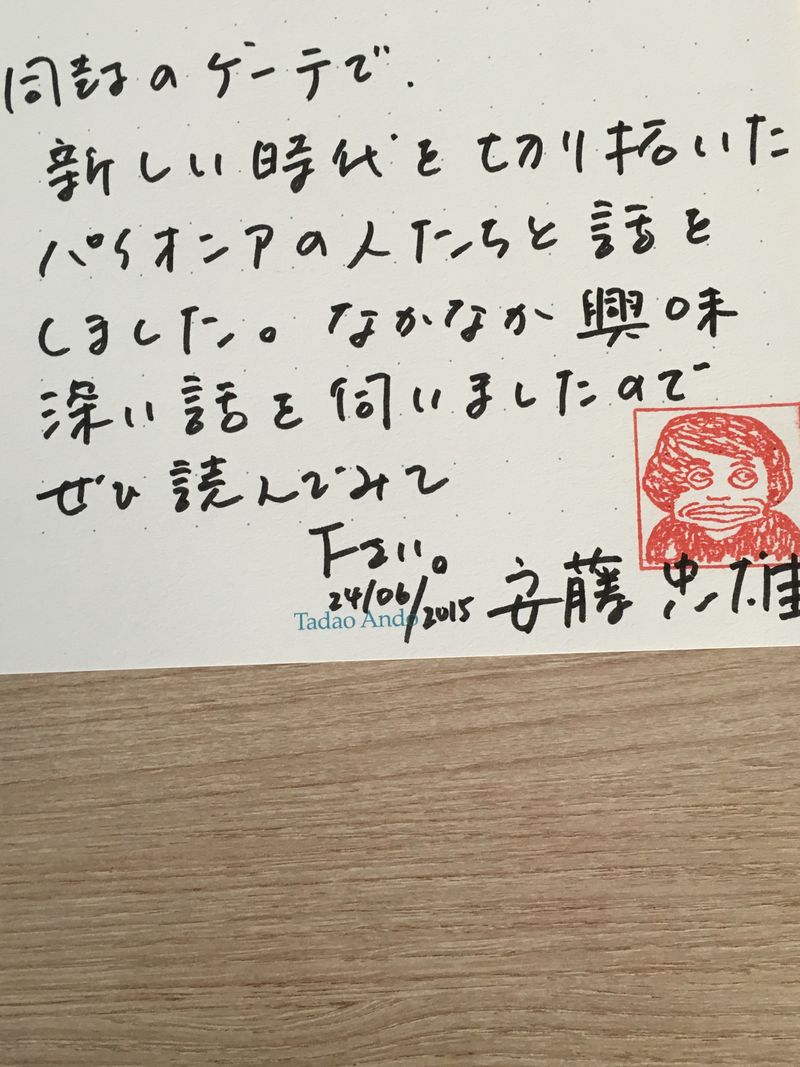 同封のゲーテで.
新しい時代を切り拓いた
パイオニアの人たちと話を
しました。なかなか興味
深い話を伺いましたので
ぜひ読んでみて
下さい。
24/06/2015 安藤忠雄
Tadao Ando